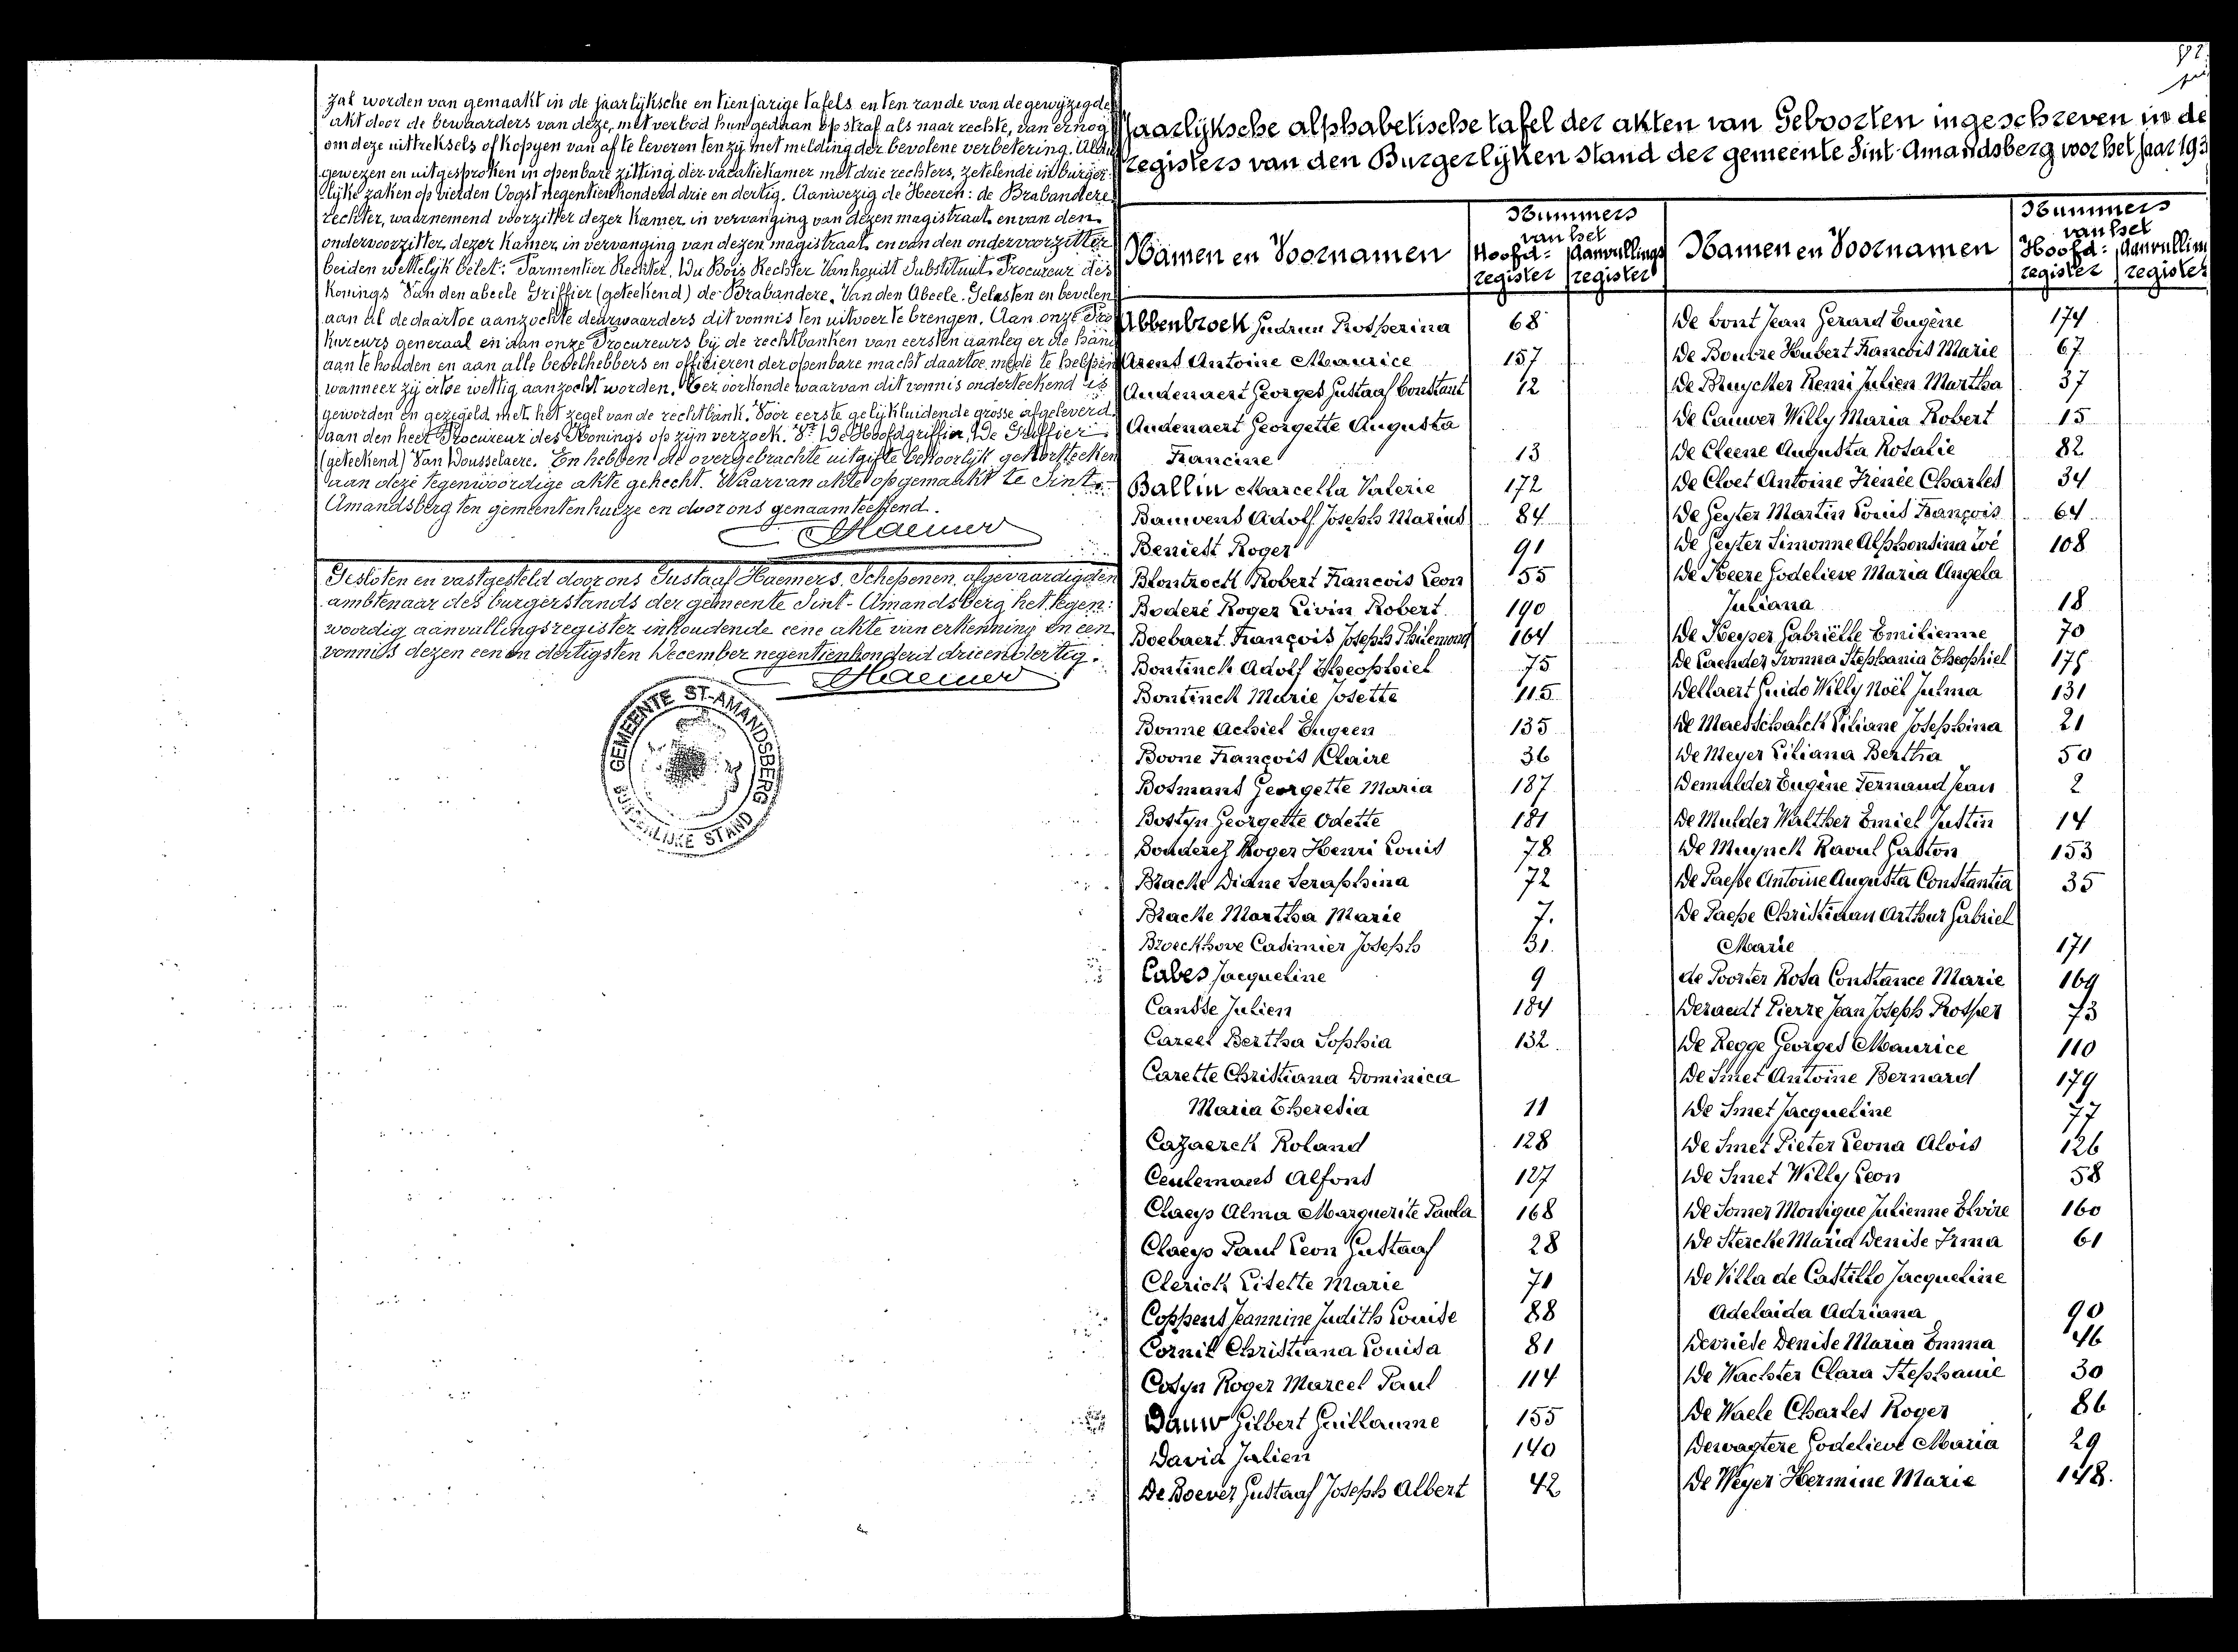 zal worden van gemaakt in de jaarlijksche en tienjarige tafels en ten rande van de gewijzigde
akt door de bewaarders van deze, met verbod hun gedaan op straf als naar rechte, van er nog
om deze uittreksels of kopyen van af te leveren tenzij met melding der bevolene verbetering. Aldus
gewezen en uitgesproken in openbare zitting der vacatiekamer met drie rechters, zetelende in burger-
lijke zaken op vierden Oogst negentienhonderd drie en dertig. Aanwezig de Heeren: de Brabandere
rechter, waarnemend voorzitter dezer Kamer in vervanging van dezen magistraat en van den
ondervoorzitter, dezer kamer, in vervanging van dezen magistraat en van den ondervoorzitter
beiden wettelijk belet: Parmentier Rechter, Du Bois Rechter Vanhoudt Substituut Procureur des
Konings Van den abeele Griffier (geteekend) de Brabandere. Van den Abeele. Gelasten en bevelen
aan al de daartoe aanzochte deurwaarders dit vonnis ten uitvoer te brengen. Aan onze Pro
kureurs generaal en aan onze Procureurs bij de rechtbanken van eersten aanleg er de hand
aan te houden en aan alle bevelhebbers en officieren der openbare macht daartoe mede te helpen
wanneer zij ertoe wettig aanzocht worden. Ter oorkonde waarvan dit vonnis onderteekend is
geworden en gezegeld met het zegel van de rechtbank. Voor eerste gelijkluidende grosse afgeleverd
aan den heer Procureur des Konings op zijn verzoek. De Hoofdgriffier, De Griffier
(geteekend) Van Wousselaere. En hebben de overgebrachte uitgifte behoorlijk
aan deze tegenwoordige akte gehecht. Waarvan akte opgemaakt te Sint-
Amandsberg ten gemeentenhuize en door ons genaamteekend.
Haemers
Gesloten en vastgesteld door ons Gustaaf Haemers, Schepenen, afgevaardigden
ambtenaar des burgerstands der gemeente Sint-Amandsberg het tegen:
woordig aanvullingsregister inhoudende eene akte van erkenning en een
vonnis dezen een en dertigsten December negentienhonderd drie en dertig.
Haemers
GEMEENTE ST-AMANDSBERG
BURGERLIJKE STAND
Jaarlijksche alphabetische tafel der akten van Geboorten ingeschreven in de
registers van den Burgerlijken stand der gemeente Sint-Amandsberg voor het jaar 193
Namen en Voornamen
Nummers
van het
Hoofd= Aanvullings
register register
Namen en Voornamen
Nummers
van het
Hoofd= Aanvulling
register register
Abbenbroek Gudrun Prosperina 68
Arens Antoine Maurice 157
Audenaert Georges Gustaaf Constant 12
Audenaert Georgette Augusta
Francine 13
Ballin Marcella Valerie 172
Bauwens Adolf Joseph Marius 84
Beniest Roger 91
Blontrock Robert François Leon 55
Boderé Roger Livin Robert 190
Boebaert François Joseph Philemond 164
Bontinck Adolf Theophiel 75
Bontinck Marie Josette 115
Bonne Achiel Eugeen 135
Boone François Claire 36
Bosmans Georgette Maria 187
Bostyn Georgette Odette 181
Bouderez Roger Henri Louis 78
Bracke Diane Seraphina 72
Bracke Martha Marie 7.
Broeckhove Casimier Joseph 31.
Cabes Jacqueline 9
Cansse Julien 184
Careel Bertha Sophia 132
Carette Christiana Dominica
Maria Theresia 11
Cazaerck Roland 128
Ceulemans Alfons 127
Claeys Alma Marguerite Paula 168
Claeys Paul Leon Gustaaf 28
Clerick Lisette Marie 71
Coppens Jeannine Judith Louise 88
Cornil Christiana Louisa 81
Cosyn Roger Marcel Paul 114
Dauw Gilbert Guillaume 155
David Julien 140
De Boever Gustaaf Joseph Albert 42
De bont Jean Gerard Eugène 174
De Boutre Hubert François Marie 67
De Bruycker Remi Julien Martha 37
De Cauwer Willy Maria Robert 15
De Cleene Augusta Rosalie 82
De Cloet Antoine Irenée Charles 34
De Geyter Martin Louis François 64
De Geyter Simonne Alphonsina Zoé 108
De Keere Godelieve Maria Angela
Juliana 18
De Keyser Gabriëlle Emilienne 70
De Laender Ivonna Stephania Theophiel 175
Dellaert Guido Willy Noël Julma 131
De Maesschalck Liliane Josephina 21
De Meyer Liliana Bertha 50
Demulder Eugène Fernand Jean 2
De Mulder Walther Emiel Justin 14
De Muynck Raoul Gaston 153
De Paepe Antoine Augusta Constantia 35
De Paepe Christiaan Arthur Gabriel
Marie 171
de Poorter Rosa Constance Marie 169
Deraedt Pierre Jean Joseph Prosper 73
De Regge Georges Maurice 110
De Smet Antoine Bernard 179
De Smet Jacqueline 77
De Smet Pieter Leona Aloïs 126
De Smet Willy Leon 58
De Somer Monique Julienne Elvire 160
De Stercke Maria Denise Irma 61
De Villa de Castillo Jacqueline
Adelaida Adriana 90
Devriese Denise Maria Emma 46
De Wachter Clara Stephanie 30
De Waele Charles Roger 86
Dewagtere Godelieve Maria 29
De Weyer Hermine Marie 148.